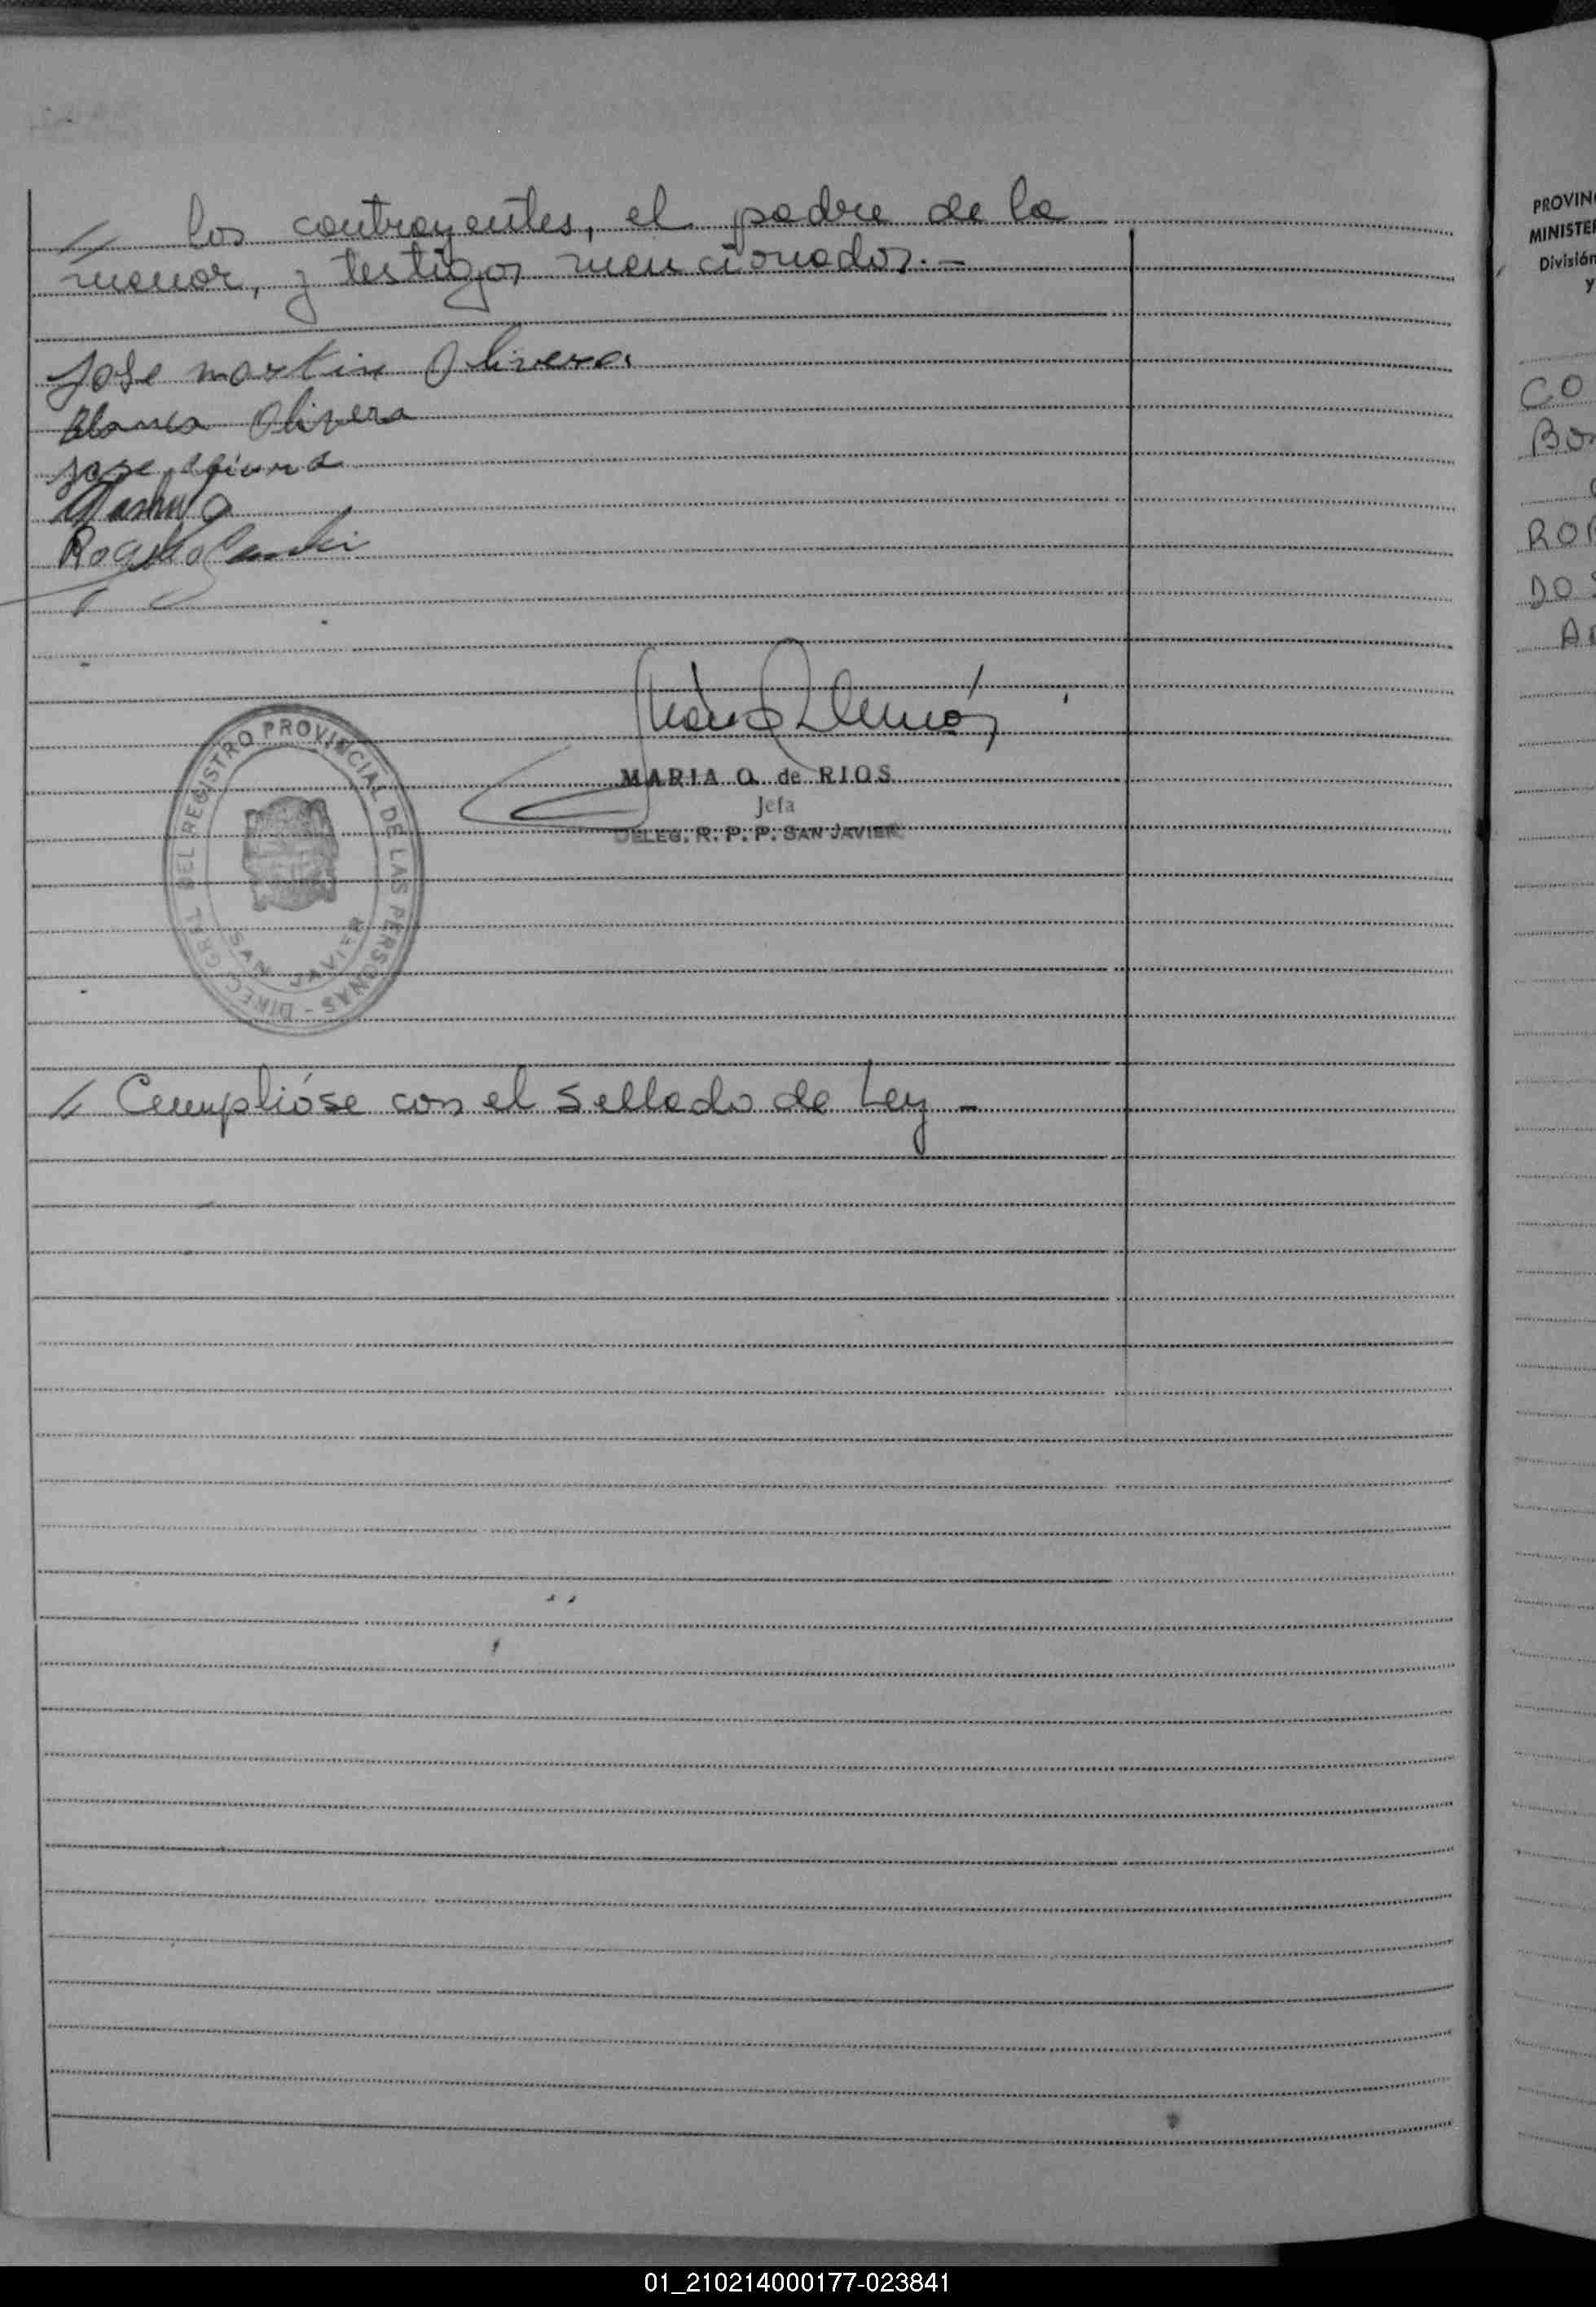 // los contrayentes, el padre de la
menor, y testigos mencionados.-
Jose martin Olivera
Blanca Olivera
Jose
MARIA O. de RIOS
Jefa
DELEG. R. P. P. SAN JAVIER
DIREC. GRAL. DEL REGISTRO PROVINCIAL DE LAS PERSONAS -
SAN JAVIER
// Cumplióse con el sellado de Ley -
PROVIN
MINISTE
División
y
CO
BO
ROB
DO
A
01_210214000177-023841